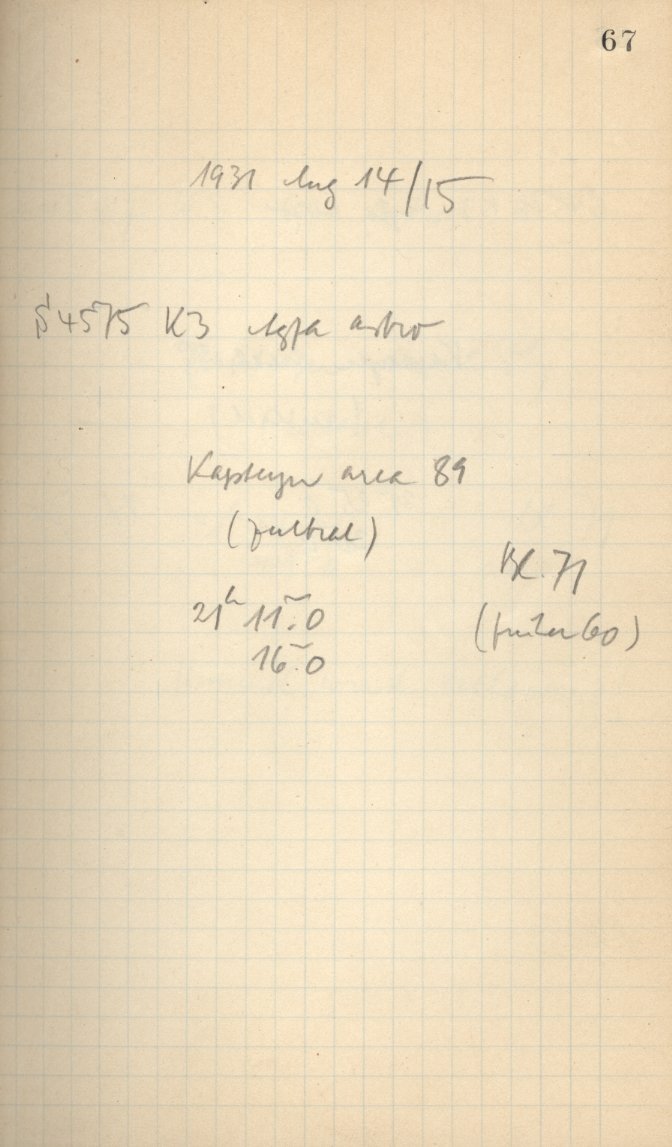 67
1931 Aug 14/15
S 4575 K3 Agfa astro
Kapteyn area 89
21h 11m.0
16m.0
Bl. 71
(früher 60)